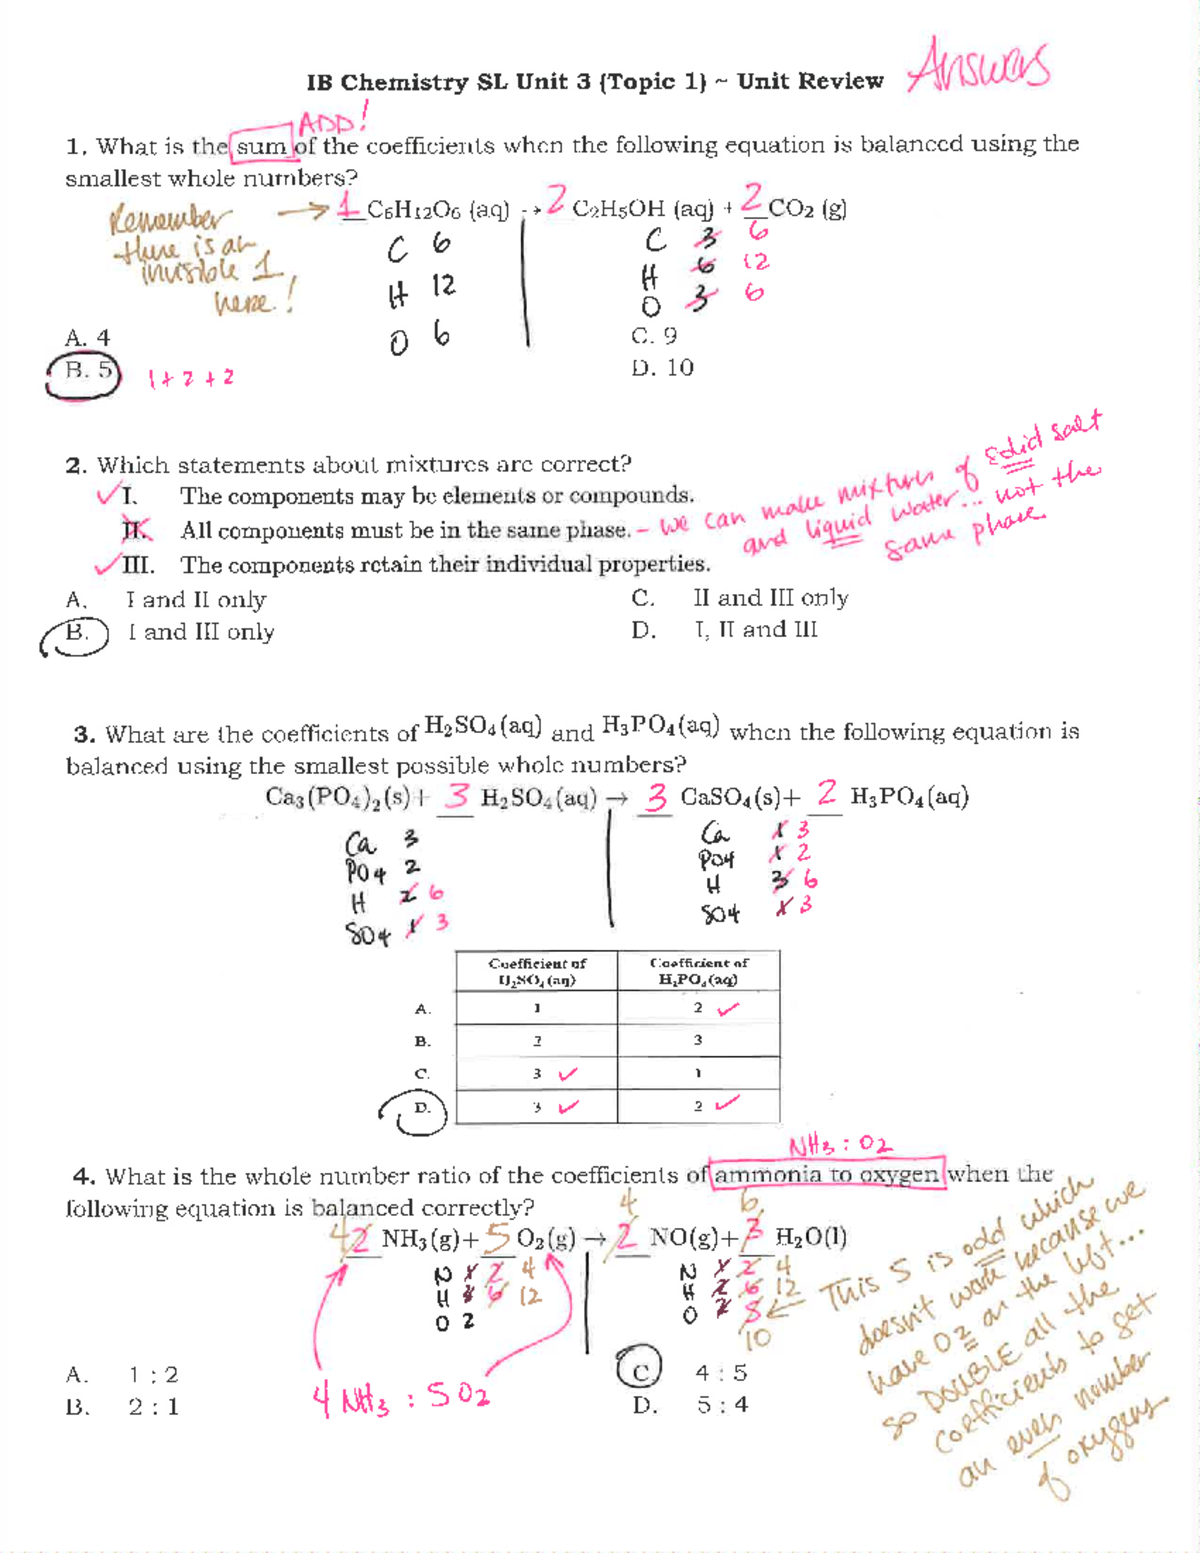 Answers
IB Chemistry SL Unit 3 (Topic 1) ~ Unit Review
ADD!
1. What is the sum of the coefficients when the following equation is balanced using the
smallest whole numbers?
Remember there is an invisible 1 here! → 1 C6H12O6 (aq) → 2 C2H5OH (aq) + 2 CO2 (g)
C 6 C 3 6
H 12 H 6 12
O 6 O 3 6
A. 4 C. 9
B. 5 1+2+2 D. 10
2. Which statements about mixtures are correct?
✓ I. The components may be elements or compounds.
X II. All components must be in the same phase. - we can make mixtures of solid salt and liquid water... not the same phase
✓ III. The components retain their individual properties.
A. I and II only C. II and III only
B. I and III only D. I, II and III
3. What are the coefficients of H2SO4(aq) and H3PO4(aq) when the following equation is
balanced using the smallest possible whole numbers?
Ca3(PO4)2(s) + 3 H2SO4(aq) → 3 CaSO4(s) + 2 H3PO4(aq)
Ca 3 Ca 1 3
PO4 2 PO4 1 2
H 2 6 H 3 6
SO4 1 3 SO4 1 3
Coefficient of H2SO4(aq) Coefficient of H3PO4(aq)
A. 1 2 ✓
B. 2 3
C. 3 ✓ 1
D. 3 ✓ 2 ✓
NH3 : O2
4. What is the whole number ratio of the coefficients of ammonia to oxygen when the
following equation is balanced correctly?
4 6
4 2 NH3(g) + 5 O2(g) → 2 NO(g) + 3 H2O(l)
N 1 2 4 N 1 2 4
H 3 6 12 H 2 6 12
O 2 O 2 5 10
← This 5 is odd which doesn't work because we have O2 on the left... so DOUBLE all the coefficients to get an even number of oxygens
A. 1 : 2 C. 4 : 5
B. 2 : 1 D. 5 : 4
4 NH3 : 5 O2